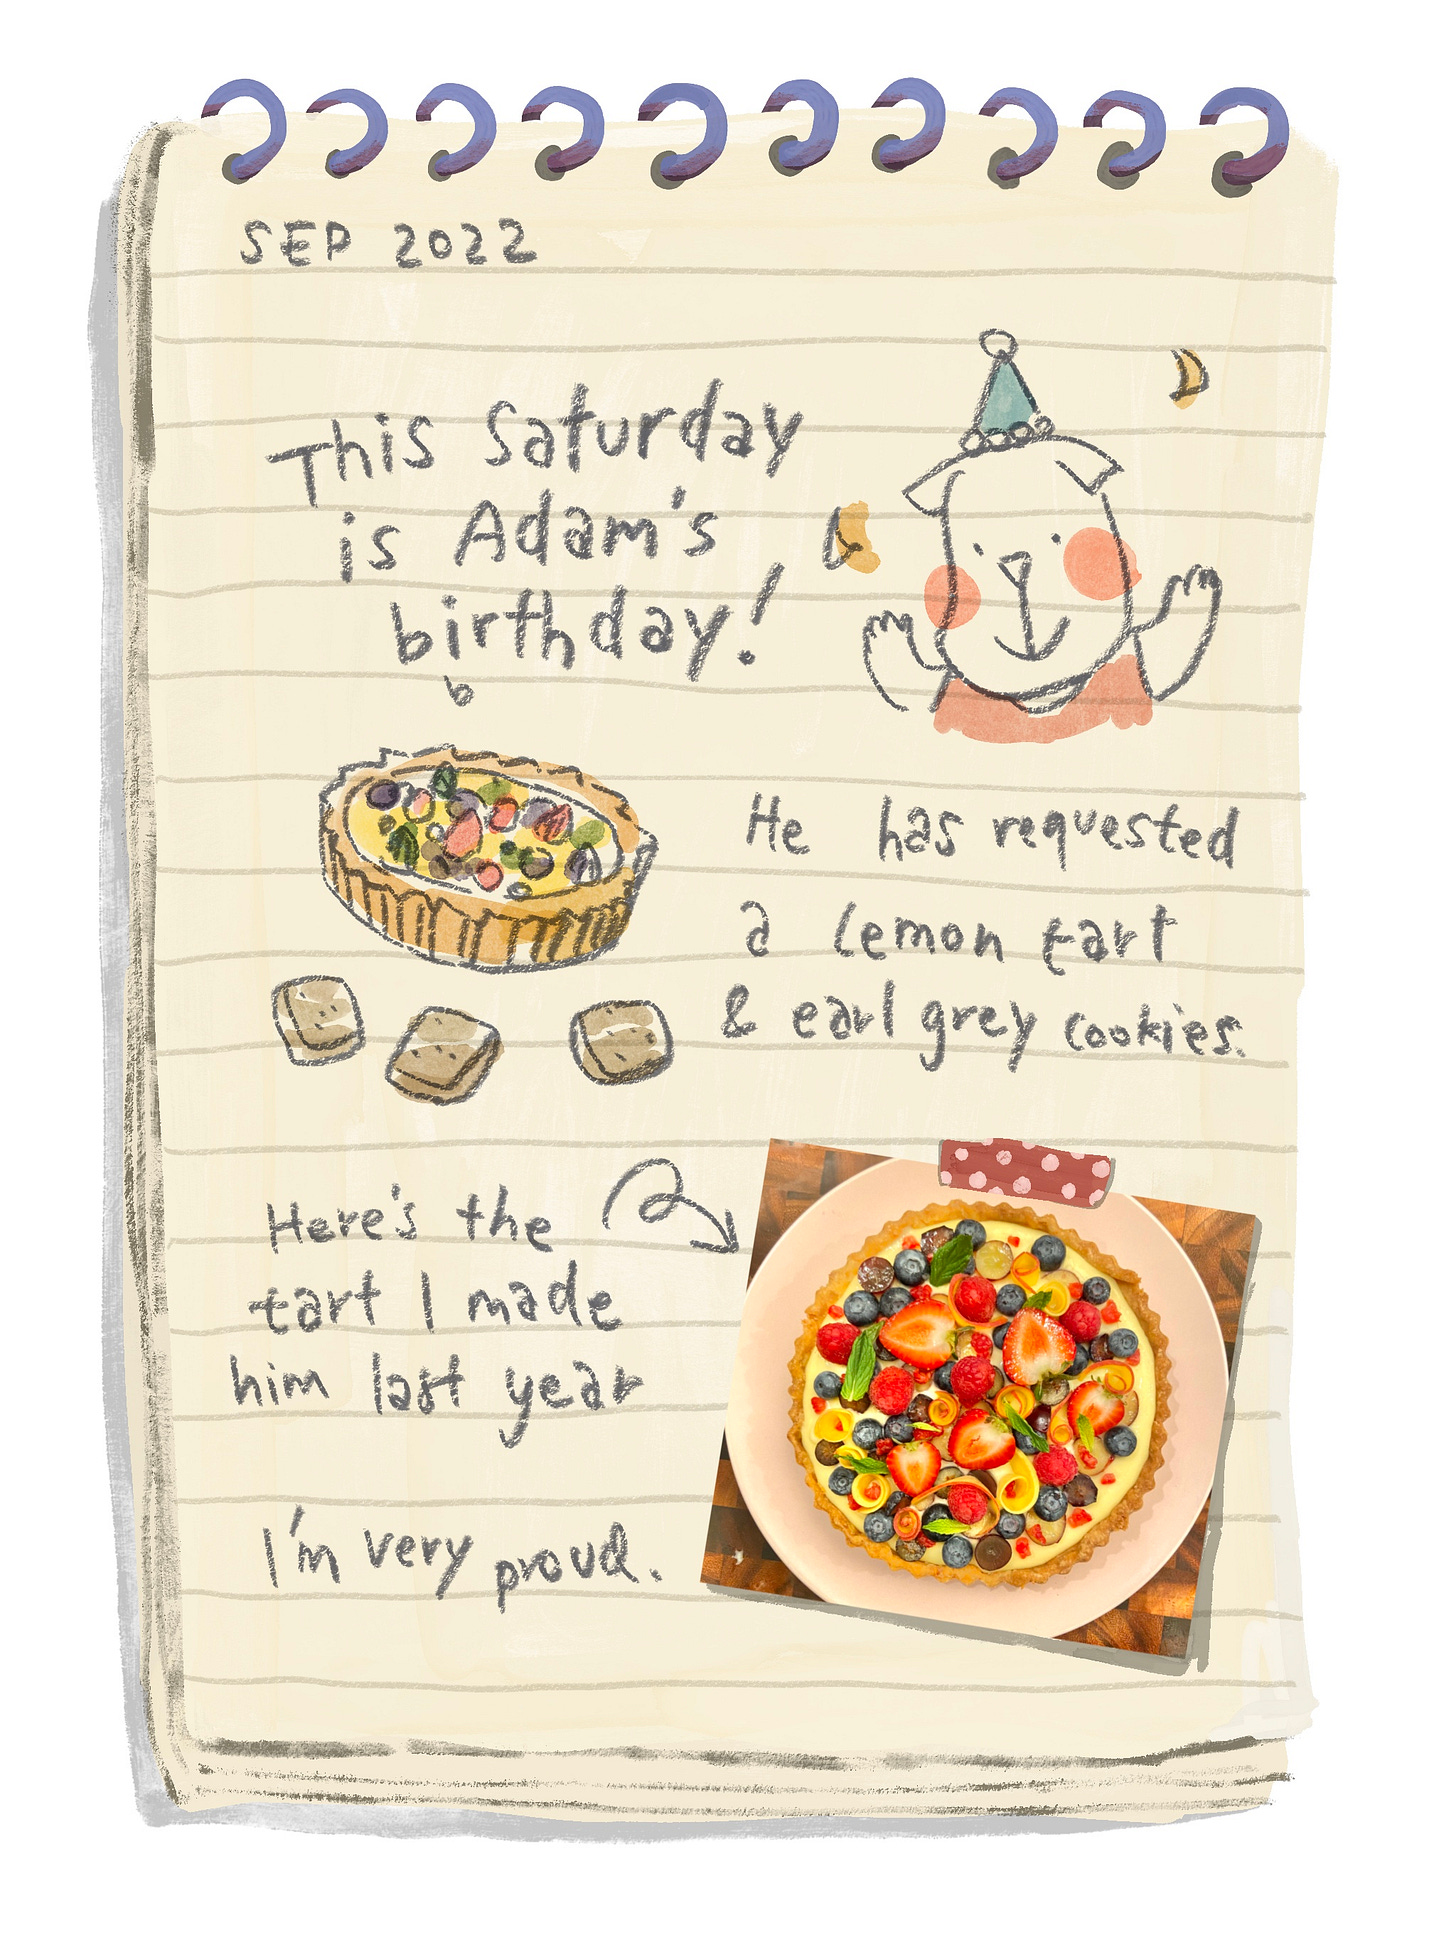 SEP 2022
This Saturday
is Adam's
birthday!
b
He has requested
a lemon tart
& earl grey cookies.
Here's the
tart I made
him last year
I'm very proud.